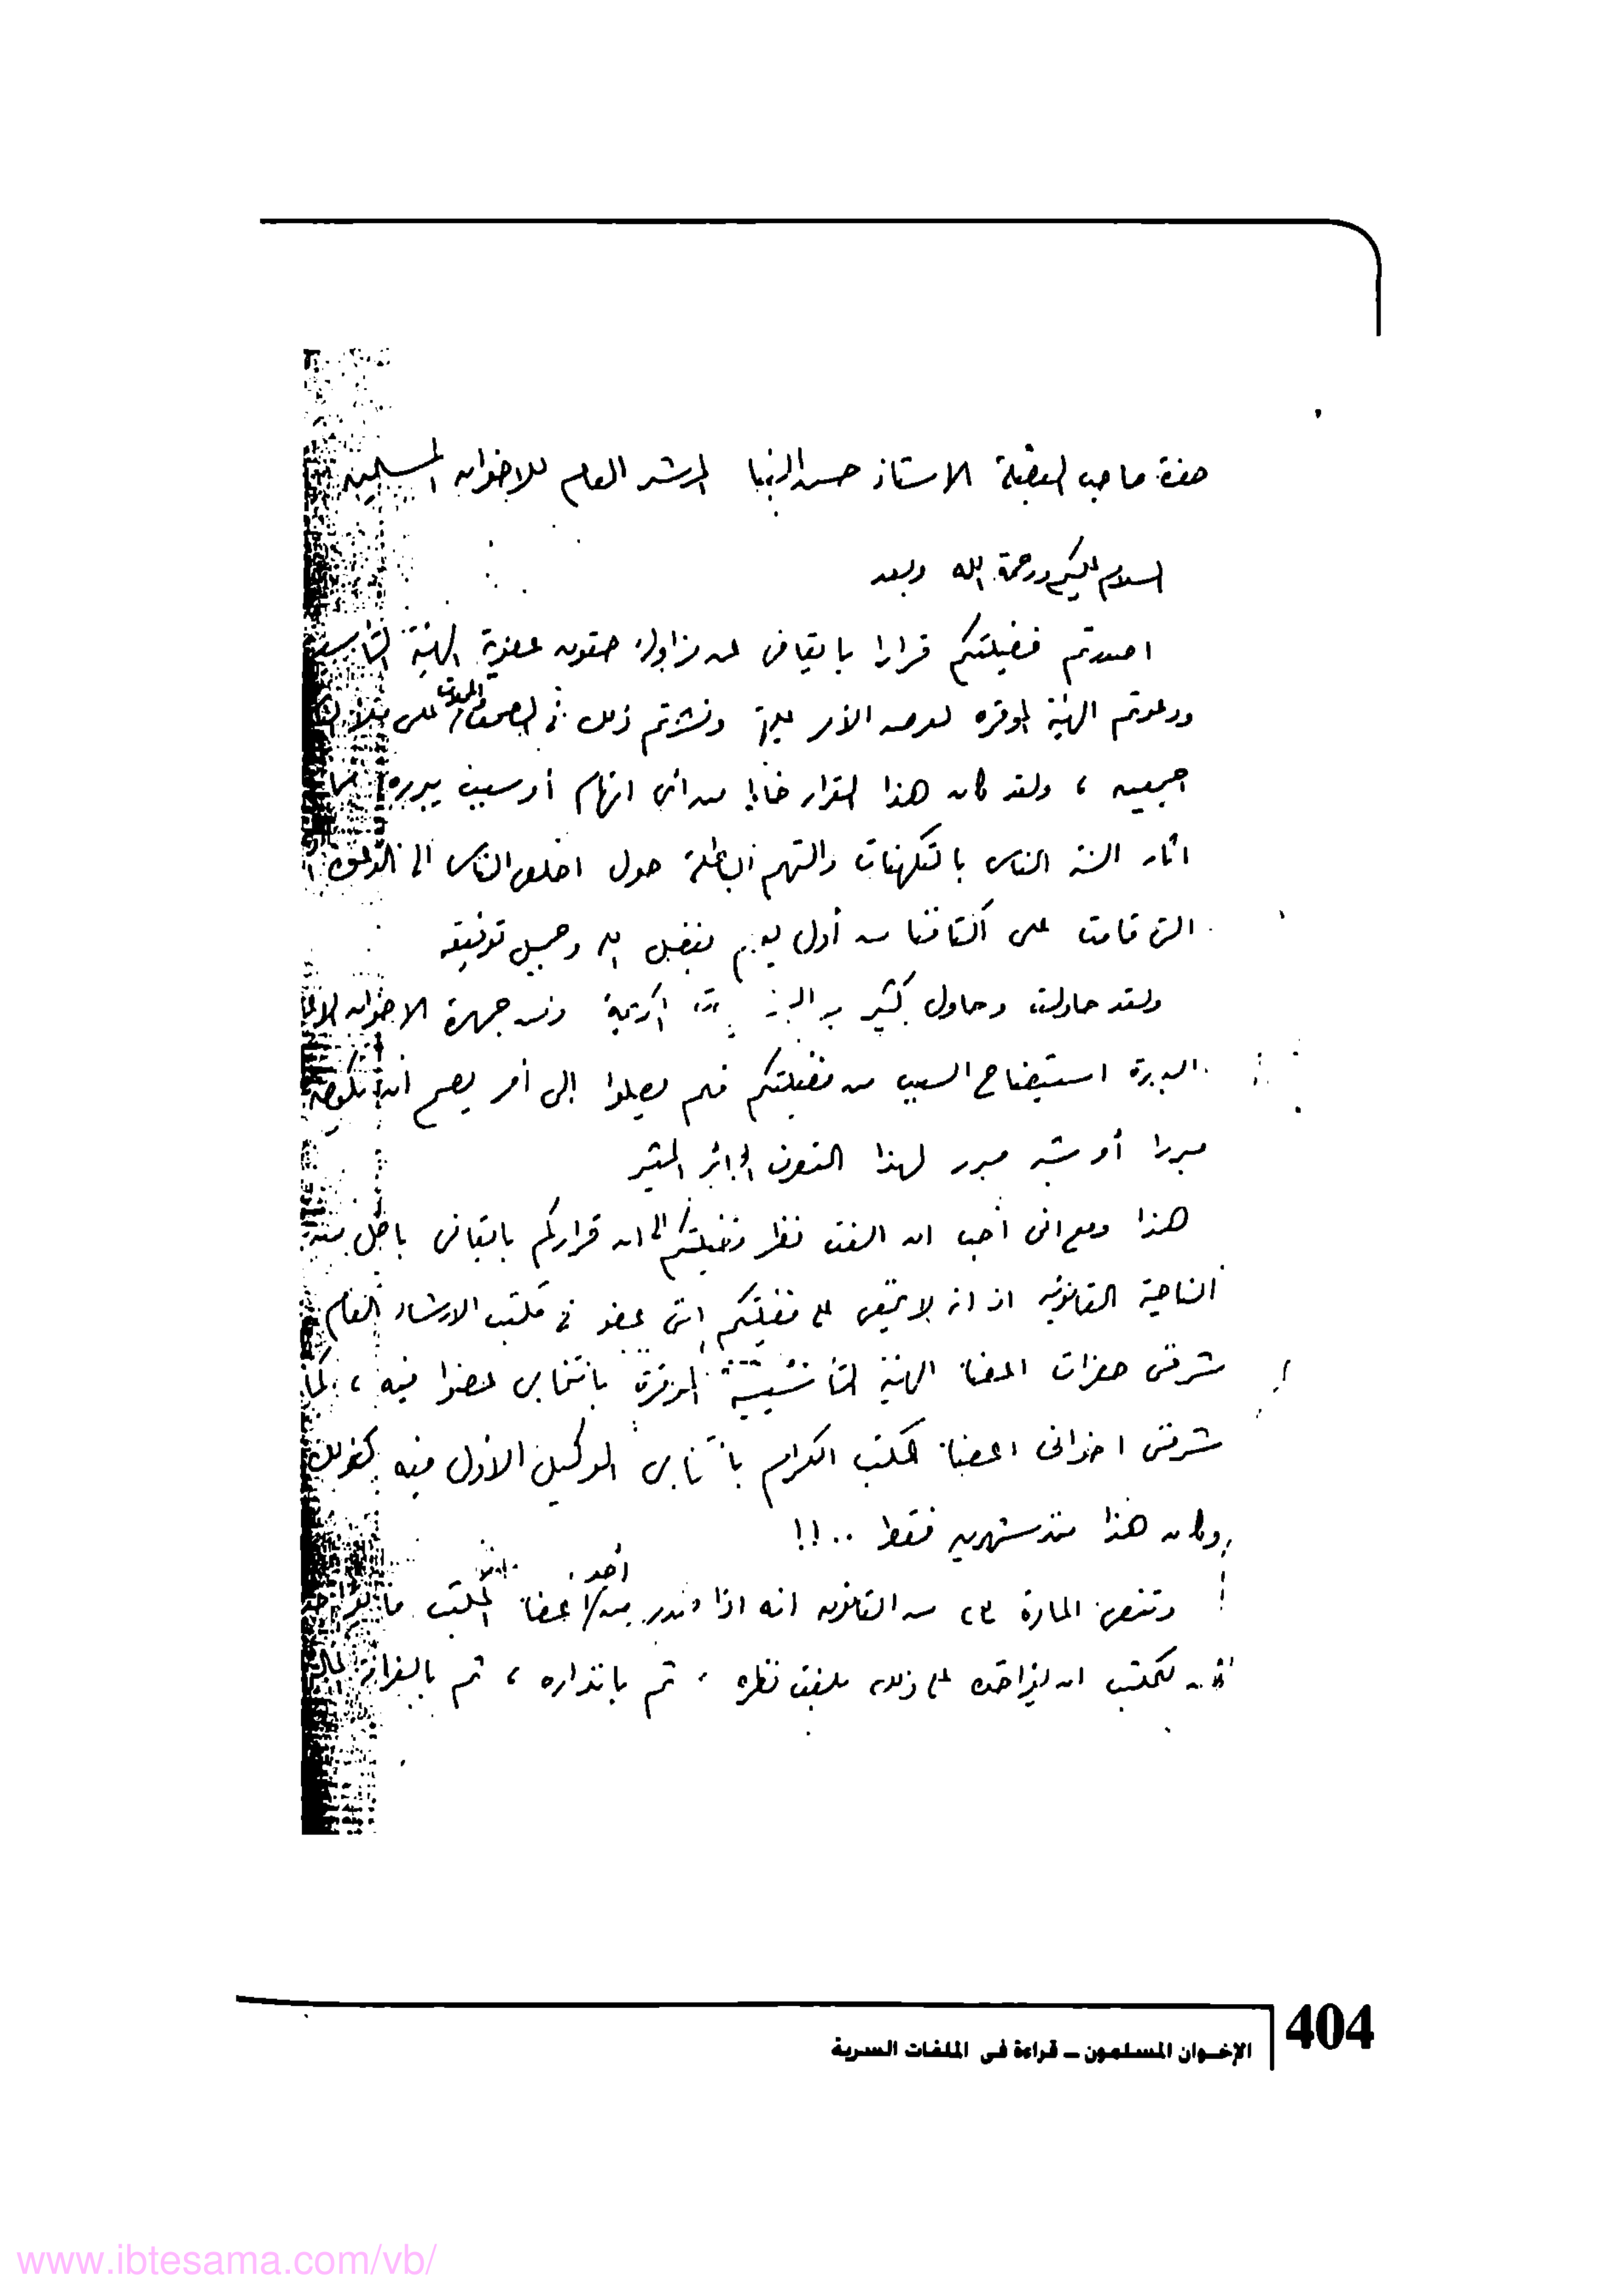 حضرة صاحب الفضيلة الاستاذ حسن البنا المرشد العام للاخوان المسلمين
السلام عليكم ورحمة الله وبعد
اصدرتم فضيلتكم قرارا بايقافى عن مزاولة حقوق عضوية الهيئة التأسيسية
ودعوتم الهيئة الموقره لعرض الأمر عليها ونشرتم ذلك فى الصحف والمجلات على
اجمعين ، ولقد كان هذا القرار خاليا من أى اتهام أو سبب يبرره مما
اثار السنة الناس بالتكهنات والتهم الباطلة حول اخلص الناس الى الدعوة
التى قامت على أكتافنا من أول يوم بفضل الله وجميل توفيقه
ولقد حاولت وحاول كثير من ومن جمهرة الاخوان
البررة استيضاح السبب من فضيلتكم فلم يصلوا إلى أمر يصح أن يكون
مبررا أو شبه مبرر لهذا التصرف الجائر المثير
هذا ومع انى أحب ان الفت نظر فضيلتكم الى ان قراركم بايقافى باطل من
الناحية القانونيه اذ انه لا يخفى على فضيلتكم اننى عضو فى مكتب الارشاد العام
شرفنى حضرات اعضاء الهيئة التأسيسية الموقرة بانتخابى عضوا فيه ، كما
شرفنى اخوانى اعضاء المكتب الكرام بانتخابى الوكيل الأول فيه كذلك
وكان هذا منذ شهرين فقط ..!!
وتنص المادة ٢٣ من القانون انه اذا صدر من أحد اعضاء المكتب ما
كان للمكتب ان يؤاخذه على ذلك بلفت نظره ، ثم بانذاره ، ثم بالغرامة المالية
404
الإخوان المسلمون ــ قراءة فى الملفات السرية
www.ibtesama.com/vb/